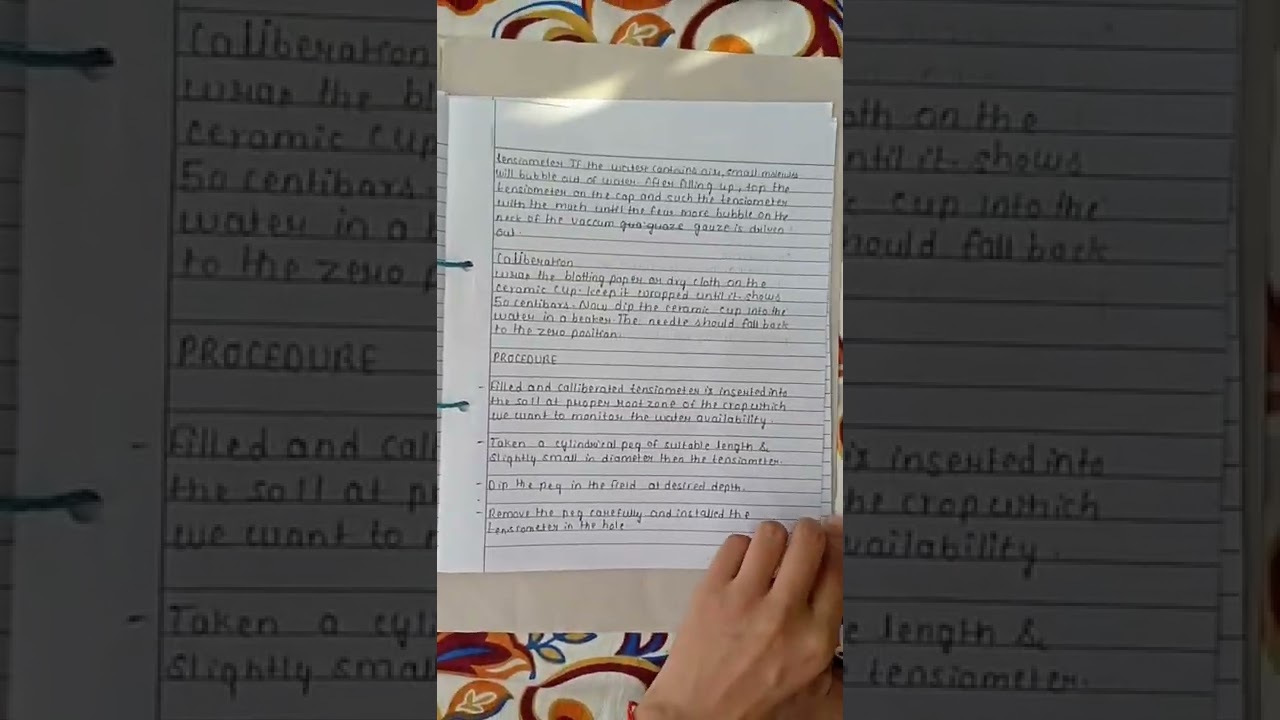 tensiometer If the water contains air, small molecules
will bubble out of water. After filling up, top the
tensiometer on the cap and such the tensiometer
with the much until the few more bubble on the
neck of the vaccum guaze gauze is driven
out.
Caliberation
wrap the blotting paper or dry cloth on the
ceramic cup. Keep it wrapped until it shows
50 centibars. Now dip the ceramic cup into the
water in a beaker. The needle should fall back
to the zero position.
PROCEDURE
- Filled and calliberated tensiometer is inserted into
the soll at proper root zone of the crop which
we want to monitor the water availability.
- Taken a cylindrical peg of suitable length &
slightly small in diameter then the tensiometer.
- Dip the peg in the field at desired depth.
- Remove the peg carefully and installed the
tensiometer in the hole